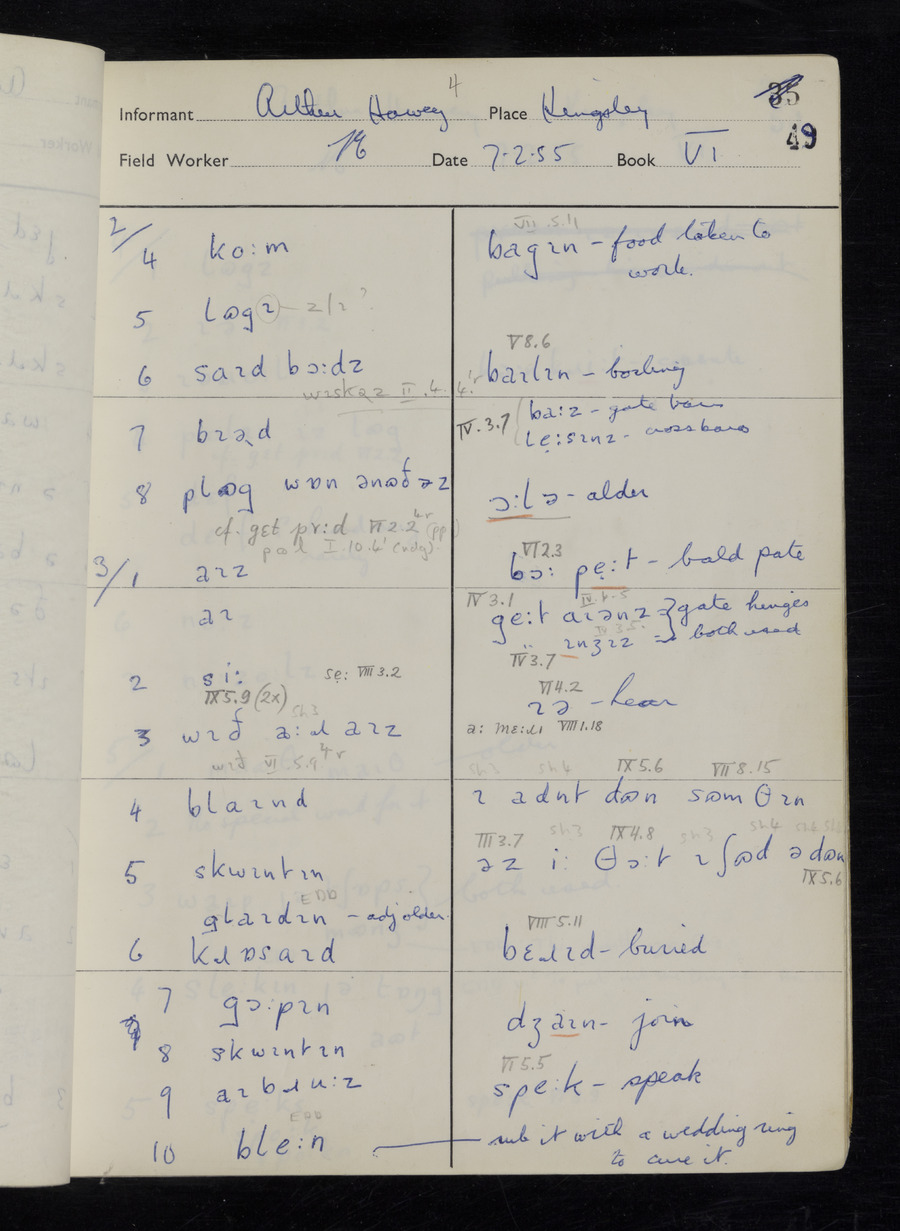 4
Informant Arthur Howey Place Kingsley 35
49
Field Worker Date 7.2.55 Book VI
2/ VII.5.11
4 ko:m bagɪn – food taken to
work.
5 lɷgɪ z/ɪ ?
V 8.6
6 saɪd bɔ:dz baɪlɪn – boiling
wɪskəz II.4.
7 bɪəd IV.3.7 ba:z – gate bars
le̜:sɪnz – crossbars
8 plɷg wɒn ənɷðəz ɔ:lə – alder
cf. get pɪ:d VI 2.2 (pp)
I.10.6 (ndg). VI 2.3
3/1 aɪz bɔ: pe̜:t – bald pate
IV 3.1
aɪ ge:t aɪənz } gate hinges
" ɪnʒɪz → both used
IV 3.7
2 si: se̜: VIII 3.2
IX 5.9 (2x) VI 4.2
ɪə – hear
sh3
3 wɪð a:ɹ aɪz a: mɛ:ɹɪ VIII 1.18
wɪð VI 5.9
sh3 sh4 IX 5.6 VII 8.15
4 blaɪnd ɪ adnt dɷn sɷm θɪn
III 3.7 sh3 IX 4.8 sh3 sh4
5 skwɪntɪn əz i: θɔ:t ɪ ʃɷd ə dɷn
IX 5.6
EDD
glaɪdɪn – adj older.
VIII 5.11
6 kɹɒsaɪd bɛɹɪd – buried
7 gɔ:pɪn dʒaɪn – join
8 skwɪntɪn
VI 5.5
9 aɪbɹu:z spe:k – speak
EDD
10 ble:n rub it with a wedding ring
to cure it.